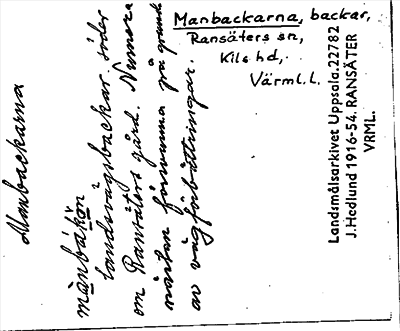 Manbackarna, backar,
Ransäters sn,
Kils hd,
Värml. l.
Manbackarna
mànbákòn
landsvägsbackar söder
om Ransäters gård. Numera
nästan försvunna på grund
av vägförbättringar.
Landsmålsarkivet Uppsala. 22782
J. Hedlund 1916-54. RANSÄTER
VRML.